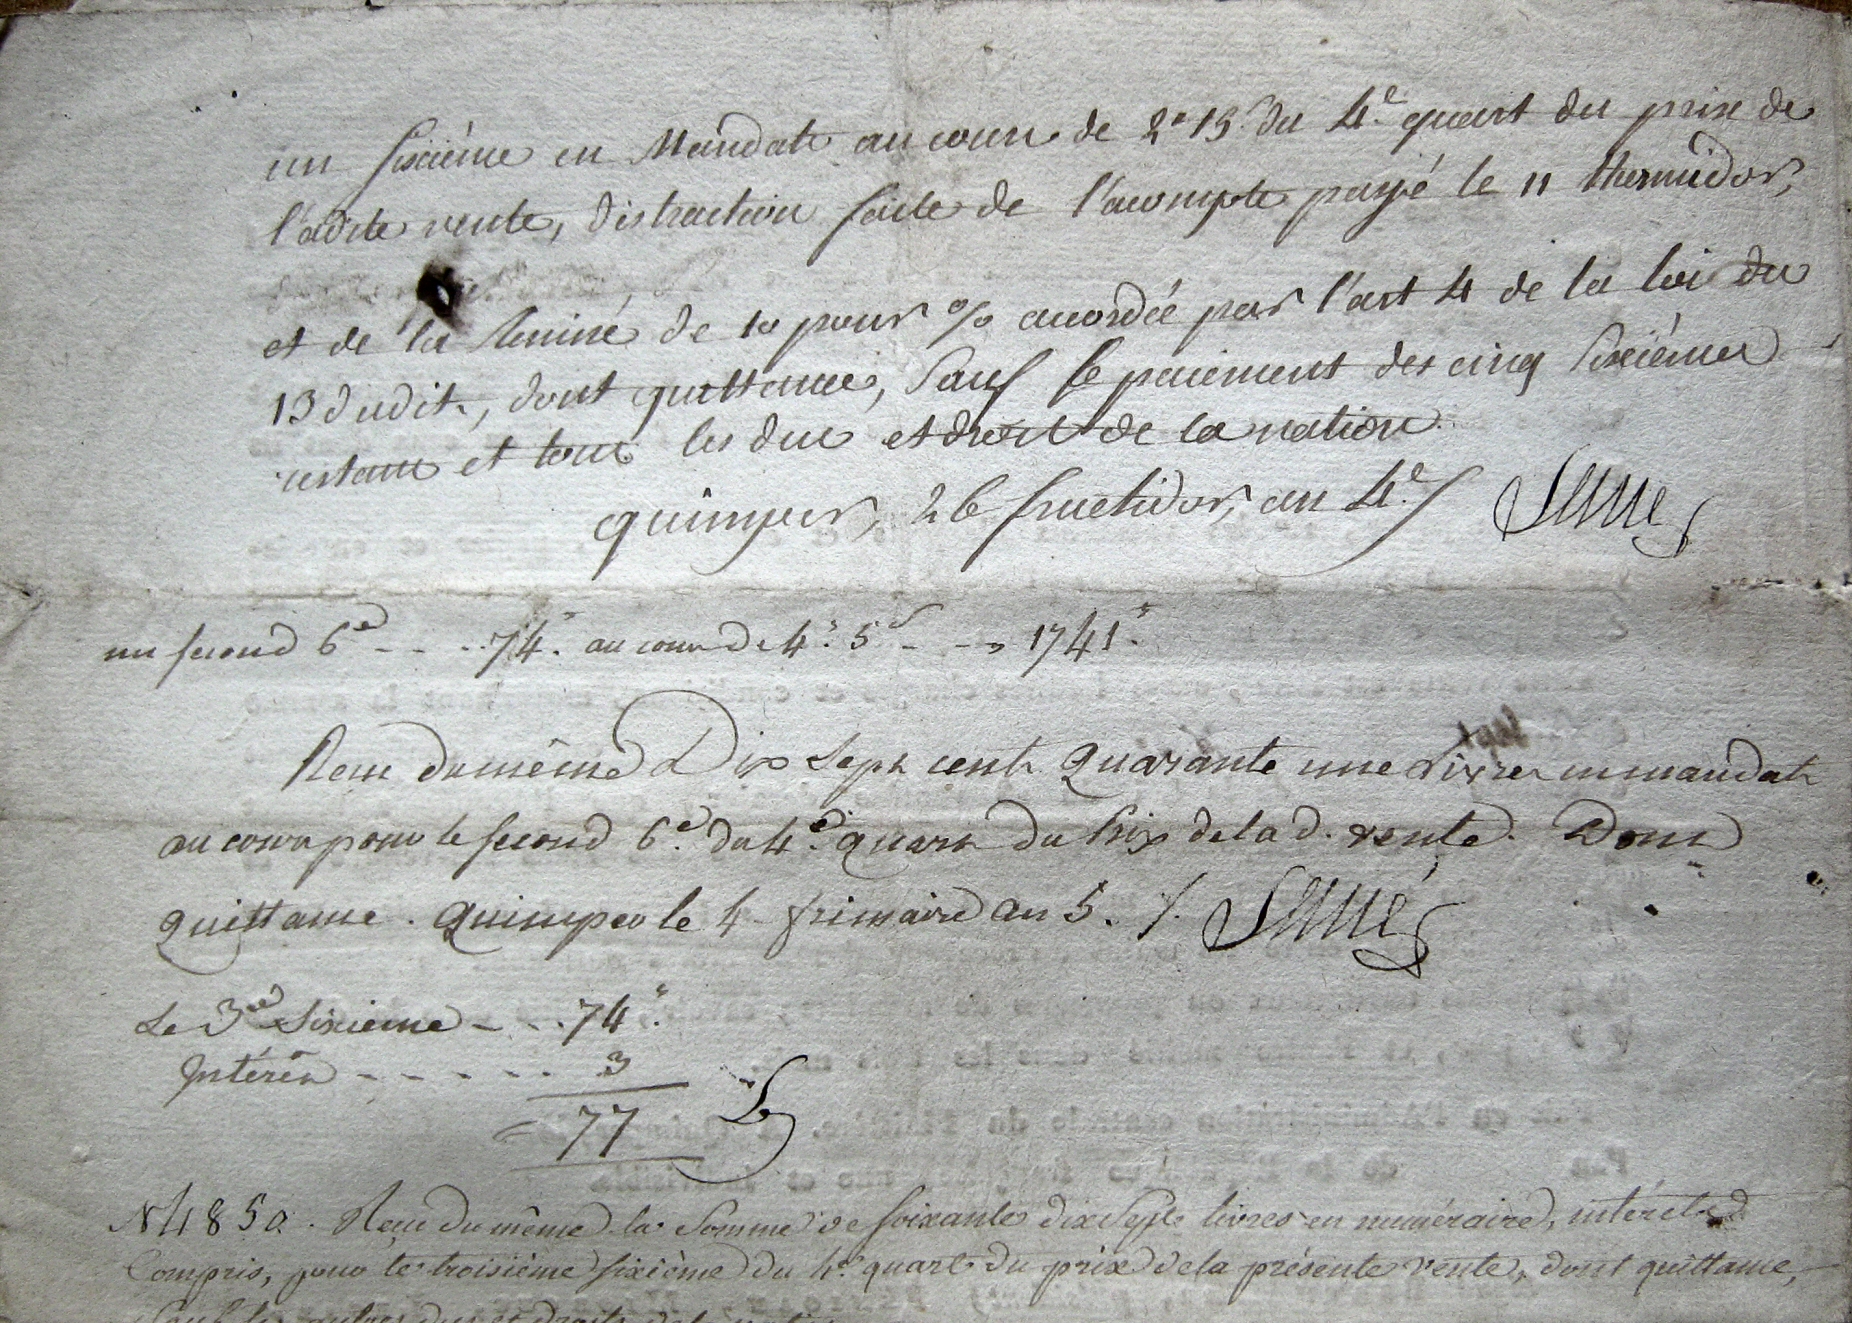 un sixième en Mandats au cours de 2" 15 du 4e quart du prix de
l'adite vente, distraction faite de l'acompte payé le 11 thermidor,
et de la remise de 10 pour % accordée par l'art 4 de la loi du
13 dudit, dont quittance, Sauf le paiement des cinq Sixièmes
restans et tous les dus et droits de la nation.
quimper, 26 fructidor, an 4e
un second 6e - - - 74." au cours de 4." 5s - - 1741."
Recu du même Dix Sept cents Quarante une Livres en mandats
au cours pour le second 6e. du 4e. quart du Prix de la d. vente. Dont
Quittance. Quimper le 4 frimaire an 5. /.
Le 3me Sixieme - - - 74."
Intérêts - - - - - - 3
77
N 4850. Recu du même la Somme de soixante dix Sept livres en numéraire, intérêts
Compris, pour le troisième sixième du 4e. quart du prix de la présente vente, dont quittance,
Sauf les autres dus et droits de la nation